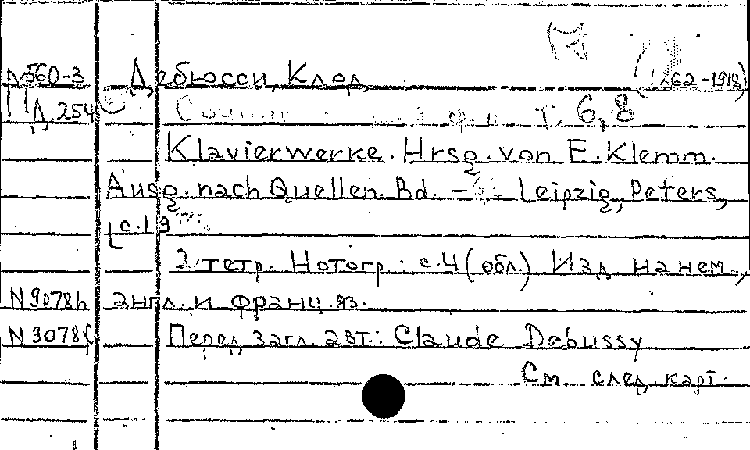 Д560-3 Дебюсси, Клод (1862-1918)
Д 254 т. 6, 8
Klavierwerke. Hrsg. von E. Klemm.
Ausg. nach Quellen. Bd. - Leipzig, Peters,
[с. 19
2 тетр. Нотогр. с. 4 (обл.) Изд. на нем.,
N9078h англ. и франц. яз.
N9078f Перед загл. авт.: Claude Debussy
См. след. карт.